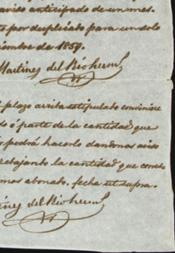 aviso anticipado de un mes.
to por duplicado para un solo
iembre de 1857.
Martinez del Rio herm
plazo arriba estipulado conviniere
do ó parte de la cantidad que
podrá hacerlo dandonos aviso
rebajando la cantidad que
mos abonato. fecha ut supra.
inez del Rio herm